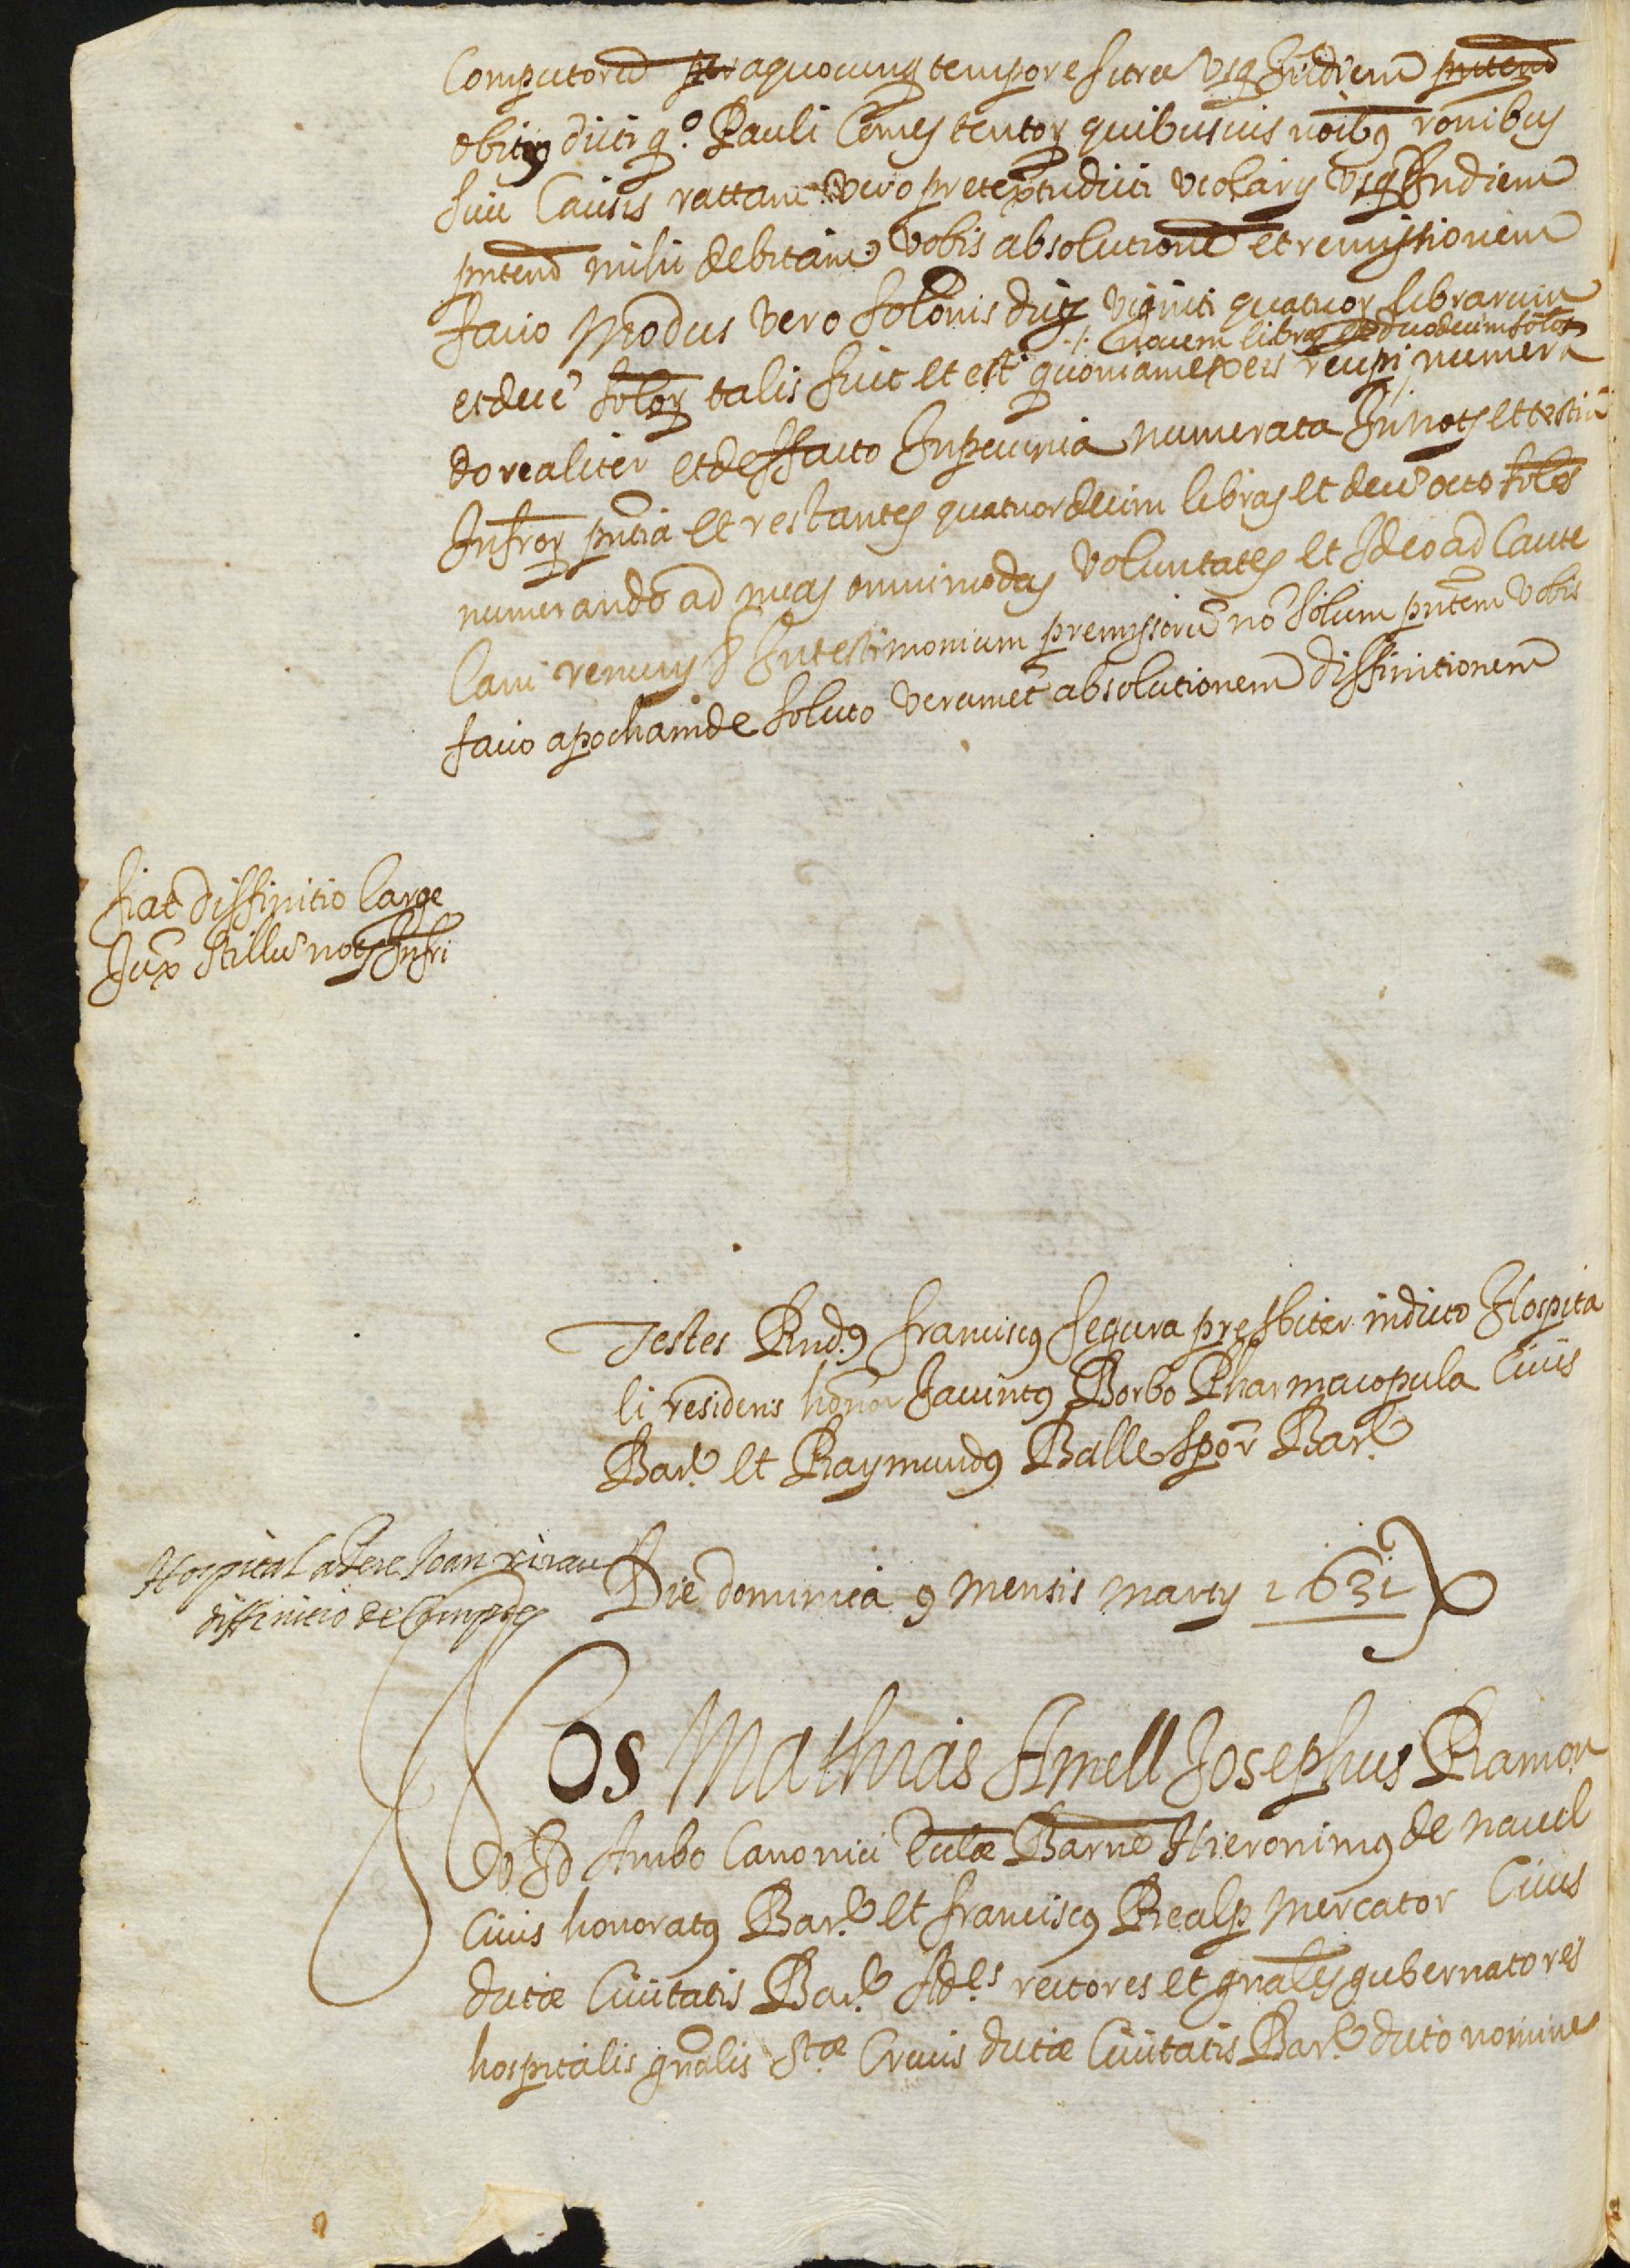 Computorũ aquocunq tempore citra Usq Indiem
obitus dicti q.º Pauli Comes tentor quibusvis noibꝯ ronibus
sive Causis rattam vero pretextu dicti violarij Usq Indiem
pntem mihi debitam vobis absolutionẽ et remissionem
facio Modus vero solonis dictaꝝ viginti quatuor librarum
./. novem libras et duodecim solos
et decẽ solor talis fuit et est quoniam ex eis recepi numera
do realiter et de facto Inpecunia numerata In nots et testiũ
Infror pntia et restantes quatuordecim libras et decẽ octo solos
numerando ad meas omnimodas voluntates et Ideo ad Caute
lam renuns & Intestimonium premissorũ nõ solum pntem vobis
facio apocham de soluto verumet absolutionem diffinitionem
fiat diffinitio large
Juxᵃ stillũ nots Infri
Testes Rndꝯ franciscꝯ segura presbiter indicto Hospita
li residens honor Jacintꝯ Borbo Pharmacopula Civis
Barᵉ et Raymundꝯ Balle spor Barᵉ
Hospital a Pere Joan xirau
diffinitio de Comptes
Die dominica 9 mensis marty 1631
Nos Mathias Amell Josephus Ramon
do Id Ambo Canonici Ecclæ Barne Hieronimꝯ de navel
Civis honoratꝯ Barᵉ et franciscꝯ Realp Mercator Civis
dictæ Civitatis Barᵉ Adᵉˢ rectores et gnales gubernatores
hospitalis gnalis Stæ Crucis dictæ Civitatis Barᵉ dicto nomine